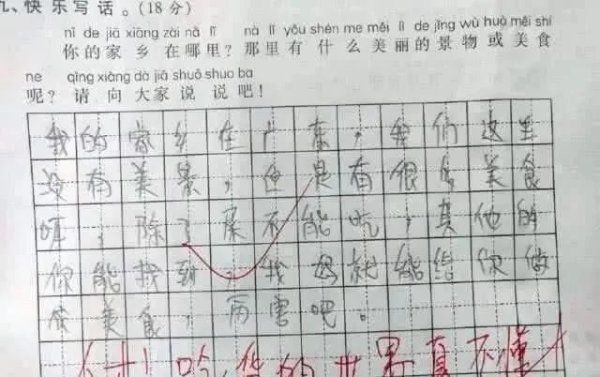 九、快乐写话。(18分)
nǐ de jiā xiāng zài nǎ lǐ nà lǐ yǒu shén me měi lì de jǐng wù huò měi shí
你的家乡在哪里?那里有什么美丽的景物或美食
ne qǐng xiàng dà jiā shuō shuo ba
呢?请向大家说说吧!
我的家乡在广东,我们这里
没有美景,但是有很多美食
哦,除了屎不能吃,其他的
你能找到,我妈就能给你做
成美食,厉害吧。
吃货的世界真不懂